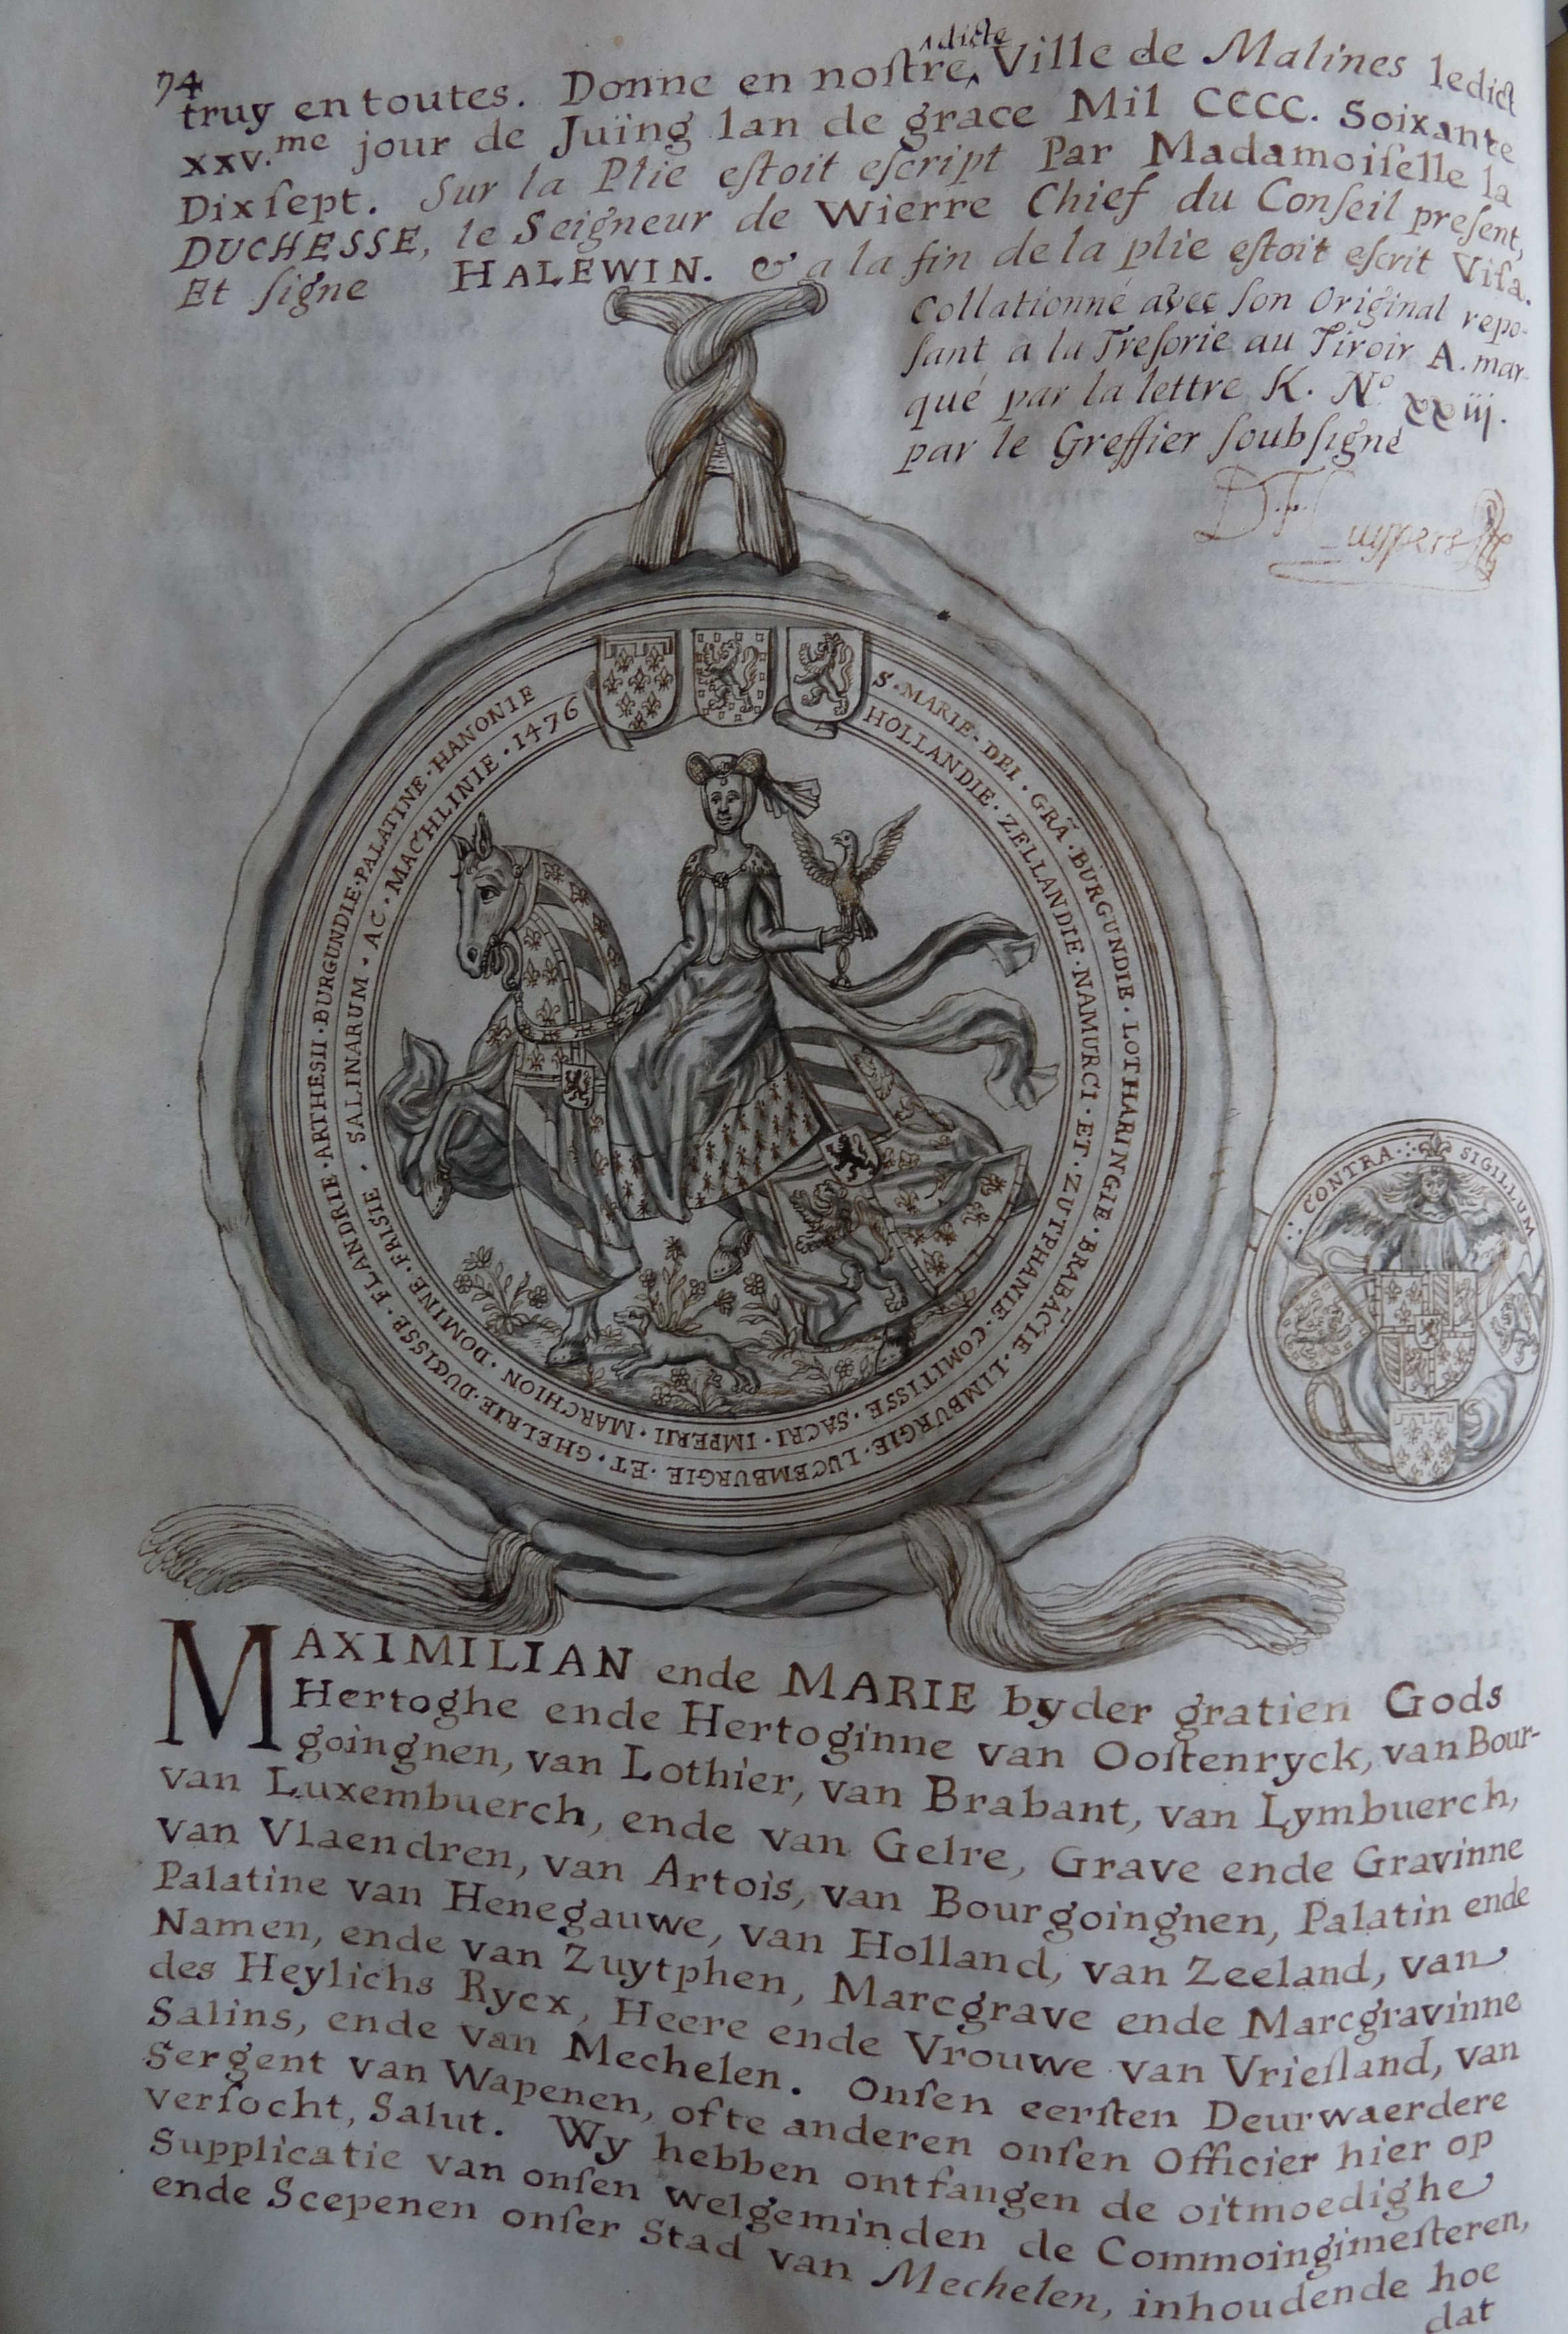 74
truy en toutes. Donne en noſtre dicte Ville de Malines ledict
xxv.me jour de Juïng lan de grace Mil CCCC. Soixante
Dixſept. Sur la Plie eſtoit eſcript Par Madamoiſelle la
DUCHESSE, le Seigneur de Wierre Chief du Conſeil preſent,
Et ſigne HALEWIN. & a la fin de la plie eſtoit eſcrit Viſa.
Collationné avec ſon Original repo-
ſant a la Treſorie au Tiroir A. mar-
qué par la lettre K. No xxiij.
par le Greffier ſoubſigné
S · MARIE · DEI · GRÃ · BURGUNDIE · LOTHARINGIE · BRABÃCIE · LIMBURGIE · LUCEMBURGIE · ET · GHELRIE · DUCISSE · FLANDRIE · ARTHESII · BURGUNDIE · PALATINE · HANONIE
HOLLANDIE · ZELLANDIE · NAMURCI · ET · ZUTPHANIE · COMITISSE · SACRI · IMPERII · MARCHION · DOMINE · FRISIE · SALINARUM · AC · MACHLINIE · 1476
CONTRA SIGILLUM
MAXIMILIAN ende MARIE byder gratien Gods
Hertoghe ende Hertoginne van Ooſtenryck, van Bour-
goingnen, van Lothier, van Brabant, van Lymbuerch,
van Luxembuerch, ende van Gelre, Grave ende Gravinne
van Vlaendren, van Artois, van Bourgoingnen, Palatin ende
Palatine van Henegauwe, van Holland, van Zeeland, van
Namen, ende van Zuytphen, Marcgrave ende Marcgravinne
des Heylichs Rycx, Heere ende Vrouwe van Vrieſland, van
Salins, ende van Mechelen. Onſen eerſten Deurwaerdere
Sergent van Wapenen, ofte anderen onſen Officier hier op
verſocht, Salut. Wy hebben ontfangen de oitmoedighe
Supplicatie van onſen welgeminden de Commoingimeſteren,
ende Scepenen onſer Stad van Mechelen, inhoudende hoe
dat